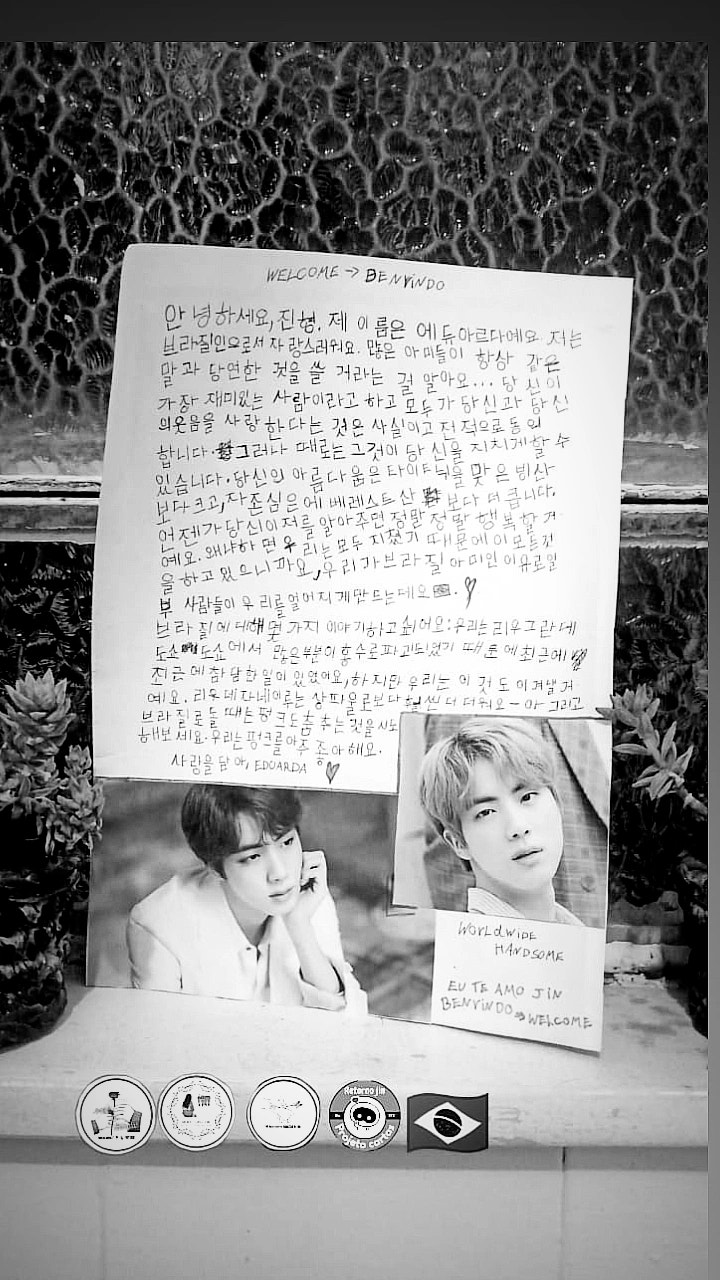 WELCOME → BENVINDO
안녕하세요, 진형. 제 이름은 에듀아르다예요. 저는
브라질인으로서 자랑스러워요. 많은 아미들이 항상 같은
말과 당연한 것을 쓸 거라는 걸 알아요... 당신이
가장 재미있는 사람이라고 하고 모두가 당신과 당신
의 웃음을 사랑한다는 것은 사실이고 저 적으로 동의
합니다. 그러나 때로는 그것이 당신을 지치게 할 수
있습니다. 당신의 아름다움은 타이타닉을 맞은 빙산
보다 크고, 자조심은 에베레스트 산 보다 더 큽니다.
언젠가 당신이 저를 알아주면 정말 정말 행복할 거
예요. 왜냐하면 우리는 모두 지쳤기 때문에 이 모든 것
을 하고 있으니까요, 우리가 브라질 아미인 이유로 일
부 사람들이 우리를 멀어지게 만드는데요. ♡
브라질에 대해 몇 가지 이야기하고 싶어요: 우리는 리우그란데
도쇼 도쇼에서 많은 부분이 홍수로 파괴되었기 때문에 최근에
최근에 참담한 일이 있었어요, 하지만 우리는 이것도 이겨낼 거
예요. 리우데자네이루는 상파울로보다 훨씬 더 더워요 ~ 아 그리고
브라질로 올 때는 펑크도 춤추는 것을 시도
해보세요. 우리는 펑크를 아주 좋아해요.
사랑을 담아, EDUARDA ♡
WORLDWIDE
HANDSOME
EU TE AMO JIN
BENVINDO → WELCOME
Retorno jin
Projeto cartas